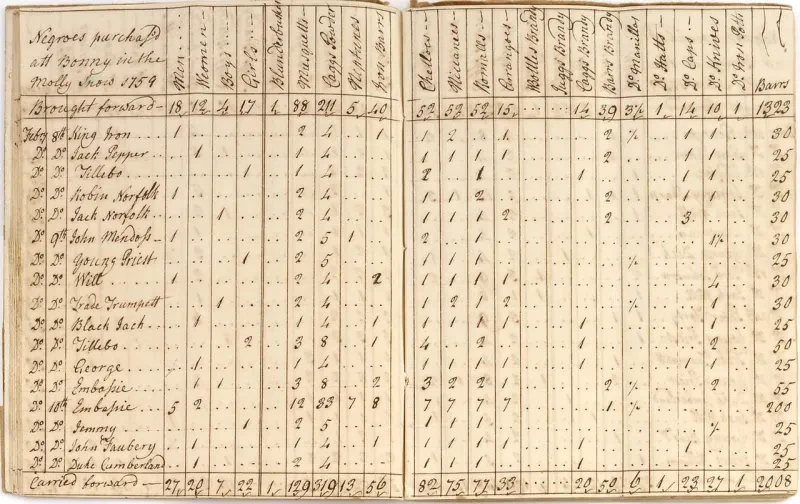 Negroes purchas'd
att Bonny in the
Molly Snow 1759
Men Women Boys Girls Blunderbuskes Musquetts Caggs Powder Neptunes Iron Barrs Chelloes Niccanees Romalls Barr Brandy Do Manillas Do Hatts Do Caps Do Knives Do Iron Pott Barrs
Brought forward 18 12 4 17 1 88 211 5 40 52 52 52 15 14 39 1 14 10 1 1323
Febry 8th King Iron 1 2 4 1 1 2 1 2 1 1 30
Do Do Jack Pepper 1 1 4 1 1 1 1 2 1 1 25
Do Do Tillebo 1 1 4 2 1 1 1 25
Do Do Robin Norfolk 1 2 4 1 1 2 2 1 1 30
Do Do Jack Norfolk 1 2 4 1 1 1 2 2 3 30
Do 9th John Mendoss 1 2 5 1 2 1 30
Do Do Young Priest 1 2 5 1 1 1 1 25
Do Do Will 1 2 4 2 1 1 1 1 4 30
Do Do Trade Trumpett 1 2 4 1 2 1 2 1 30
Do Do Black Jack 1 1 4 1 1 1 1 1 1 1 25
Do Do Tillebo 2 3 8 1 4 2 1 2 50
Do Do George 1 1 4 1 1 1 1 1 1 25
Do Do Embassie 1 1 3 8 2 3 2 2 1 2 2 55
Do 10th Embassie 5 2 12 33 7 8 7 7 7 7 1 200
Do Do Jemmy 1 2 5 1 1 1 25
Do Do John Faubery 1 1 4 1 1 1 1 1 1 1 25
Do Do Duke Cumberland 1 2 4 1 1 1 1 25
Carried forward 27 20 7 22 1 129 319 13 56 82 75 77 33 20 50 6 1 23 27 1 2008